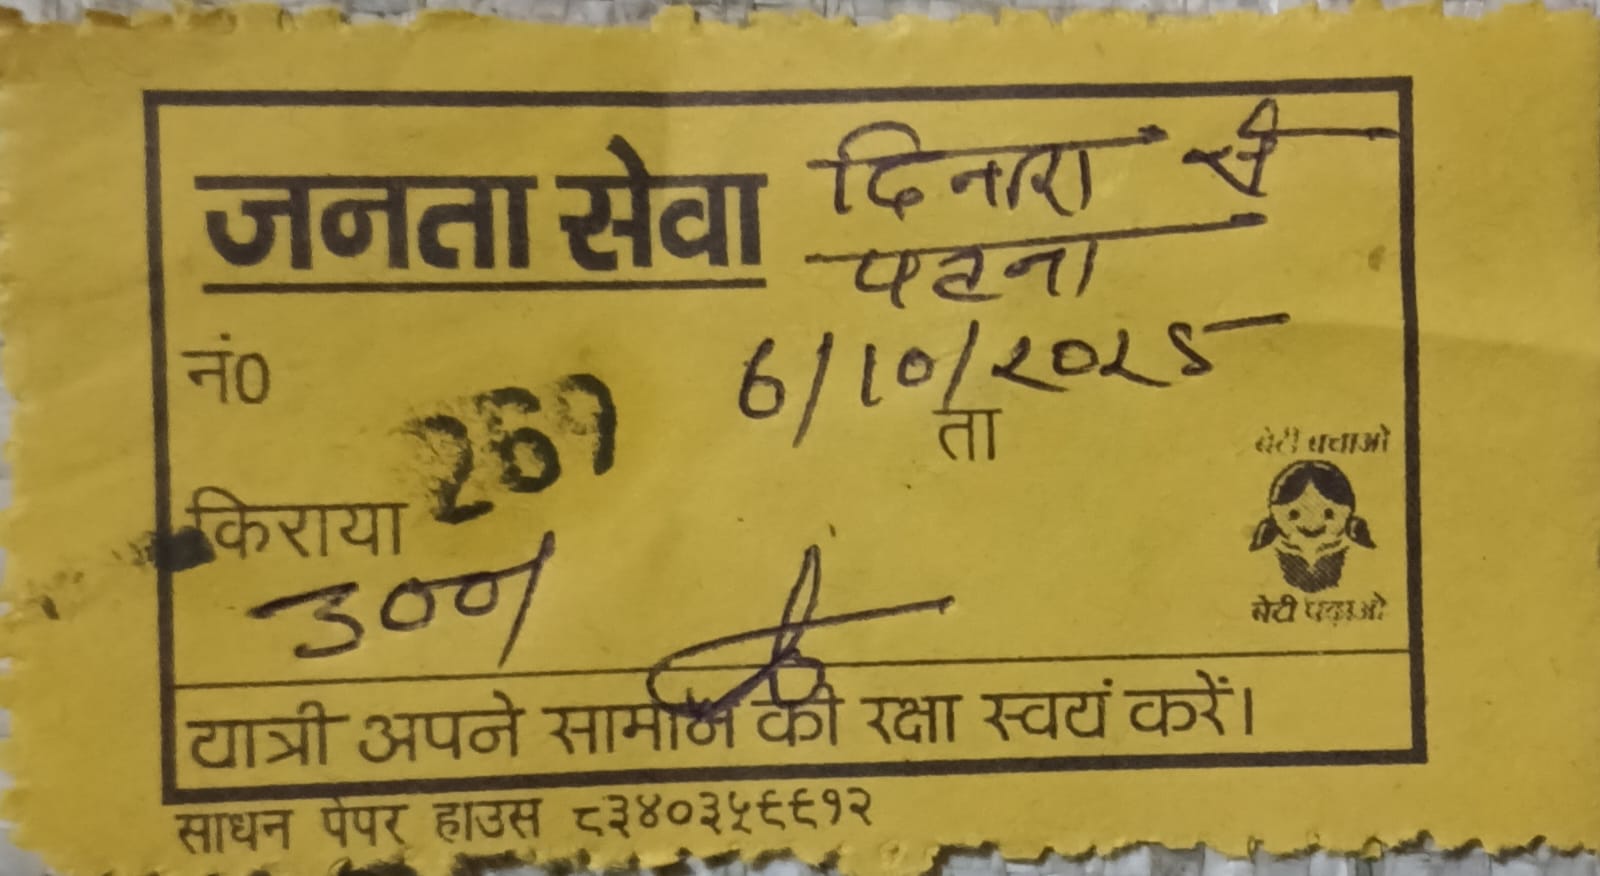 जनता सेवा
दिनारा से
पटना
नं0
6/10/२०२5
ता
267
किराया
300/
बेटी बचाओ
बेटी पढ़ाओ
यात्री अपने सामान की रक्षा स्वयं करें।
साधन पेपर हाउस ८३४०३५९९१२